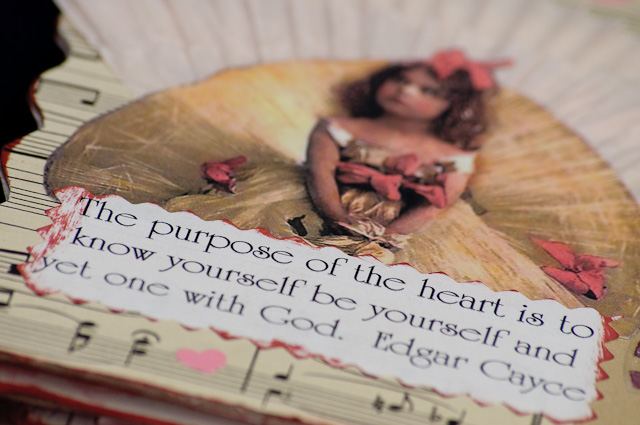 The purpose of the heart is to
know yourself be yourself and
yet one with God. Edgar Cayce